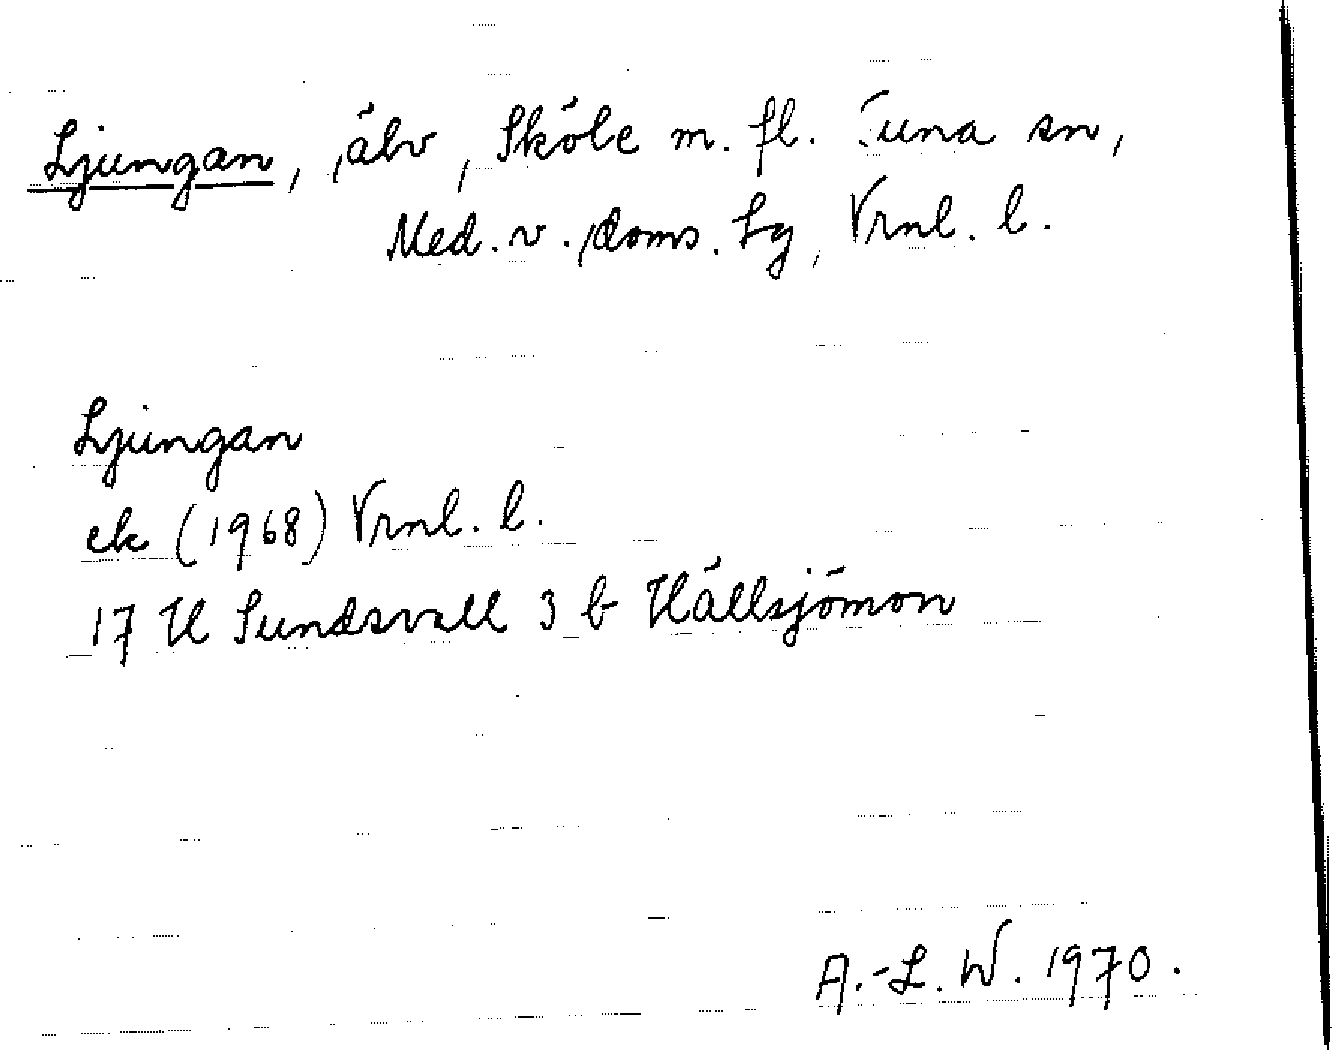 Ljungan, älv, Sköle m. fl. Tuna sn,
Med. v. doms. Lg, Vrnl. l.
Ljungan
ek (1968) Vrnl. l.
17 H Sundsvall 3 b Hällsjömon
A.-L. W. 1970.